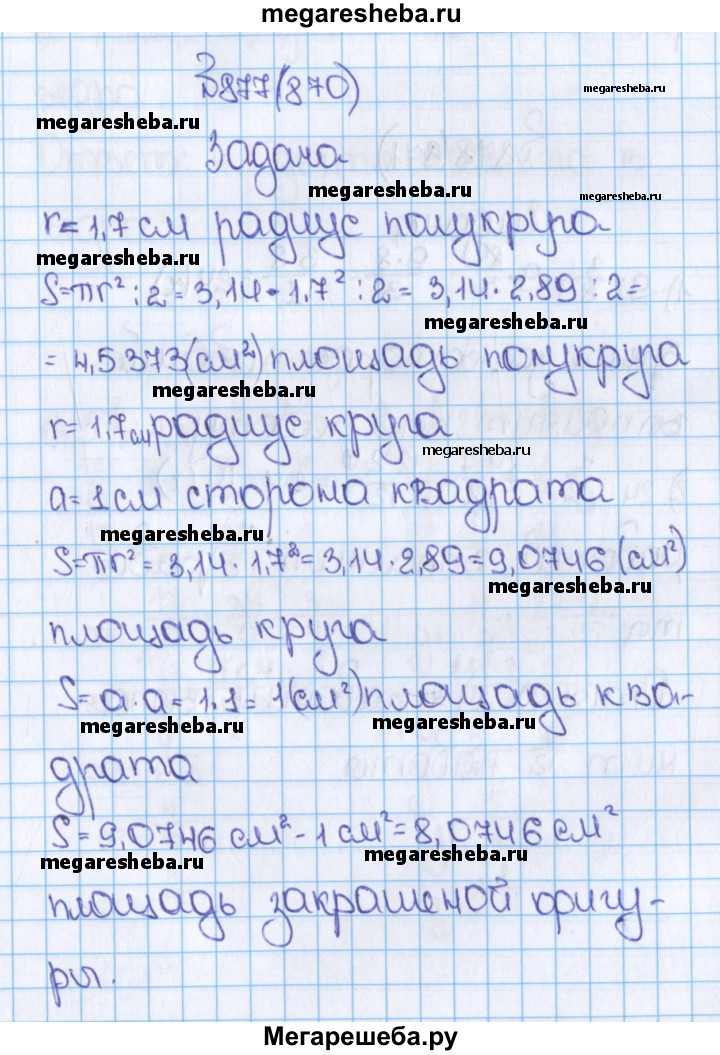 megaresheba.ru
№877(870)
megaresheba.ru
megaresheba.ru
Задача
megaresheba.ru
megaresheba.ru
r=1,7см радиус полукруга
megaresheba.ru
S=πr²:2=3,14·1.7²:2=3,14·2,89:2=
megaresheba.ru
=4,5373(см²)площадь полукруга
megaresheba.ru
r=1,7см радиус круга
megaresheba.ru
a=1см сторона квадрата
megaresheba.ru
S=πr²=3,14·1,7²=3,14·2,89=9,0746(см²)
megaresheba.ru
площадь круга
S=a·a=1·1=1(см²)площадь ква-
megaresheba.ru megaresheba.ru
драта
S=9,0746см²-1см²=8,0746см²
megaresheba.ru megaresheba.ru
площадь закрашеной фигу-
ры.
Мегарешеба.ру